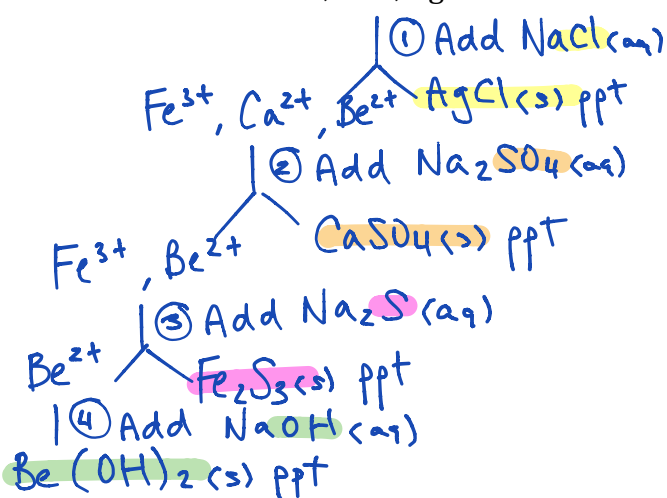 ① Add NaCl(aq)
Fe³⁺, Ca²⁺, Be²⁺ AgCl(s) ppt
② Add Na₂SO₄(aq)
CaSO₄(s) ppt
Fe³⁺, Be²⁺
③ Add Na₂S(aq)
Be²⁺ Fe₂S₃(s) ppt
④ Add NaOH(aq)
Be(OH)₂(s) ppt